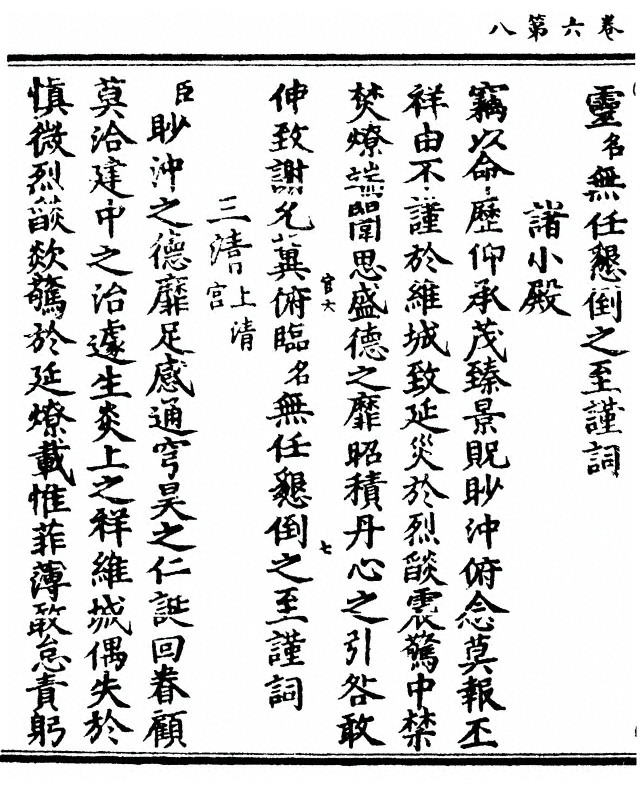 卷六第八
靈名無任懇倒之至謹詞
諸小殿
竊以命歷仰承茂臻景貺眇沖俯念莫報丕
祥由不謹於維城致延災於烈燄震驚中禁
焚燎端闈思盛德之靡昭積丹心之引咎敢
伸致謝允冀俯臨名無任懇倒之至謹詞
官大
七
三清上清宮
臣眇沖之德靡足感通穹昊之仁誕回眷顧
莫洽建中之治遽生炎上之祥維城偶失於
慎微烈燄欻驚於延燎載惟菲薄敢怠責躬